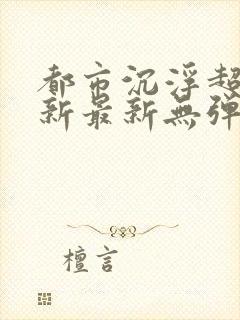 都市沉浮超
新最新無彈
檀言